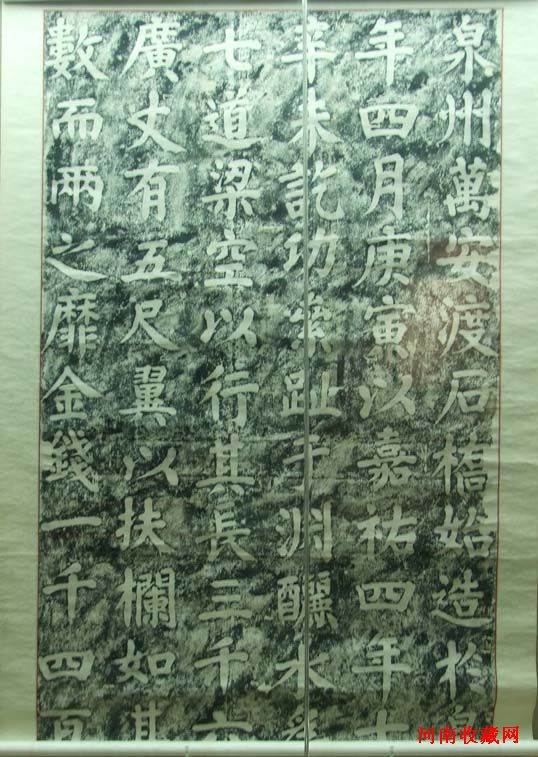 泉州萬安渡石橋始造於
年四月庚寅以嘉祐四年十
辛未訖功絫趾于淵釃水
七道梁空以行其長三千六
廣丈有五尺翼以扶欄如其
數而兩之靡金錢一千四百
河南收藏网